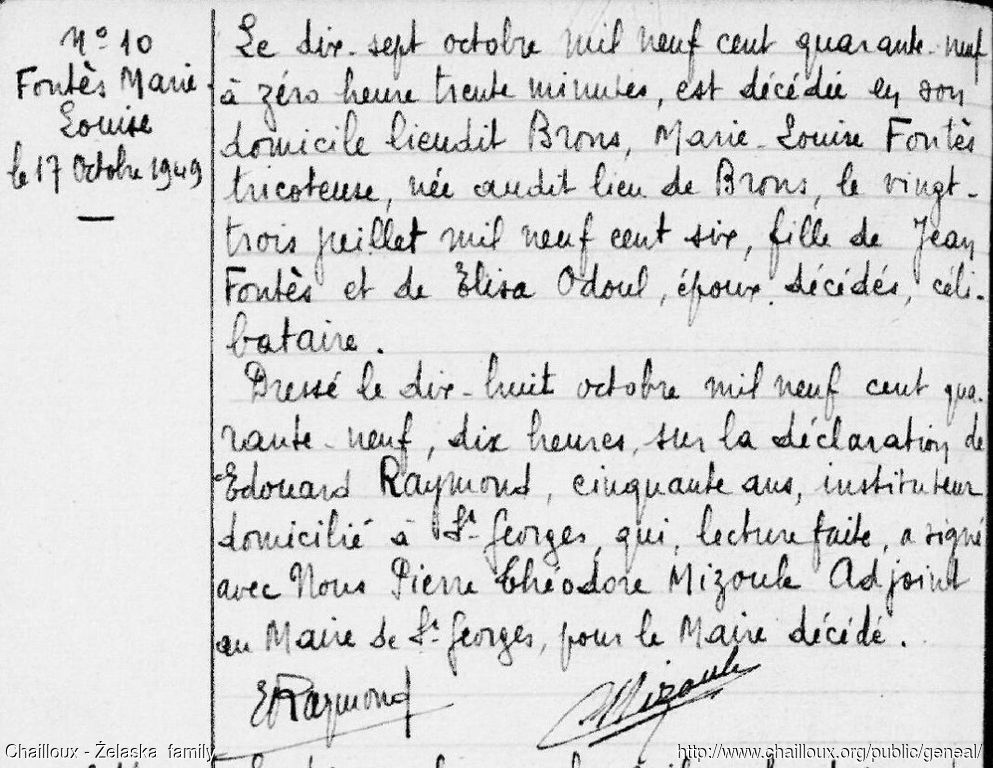 Nº 10
Fontès Marie-
Louise
le 17 Octobre 1949
Le dix-sept octobre mil neuf cent quarante-neuf
à zéro heure trente minutes, est décédée en son
domicile lieudit Brons, Marie-Louise Fontès
tricoteuse, née audit lieu de Brons, le vingt-
trois juillet mil neuf cent six, fille de Jean
Fontès et de Elisa Odoul, époux décédés, céli-
bataire.
Dressé le dix-huit octobre mil neuf cent qua-
rante-neuf, dix heures, sur la déclaration de
Edouard Raymond, cinquante ans, instituteur
domicilié à St Georges, qui, lecture faite, a signé
avec Nous Pierre Théodore Mizoule Adjoint
au Maire de St Georges, pour le Maire décédé.
ERaymond
Mizoule
Chailloux - Želaska family
http://www.chailloux.org/public/geneal/